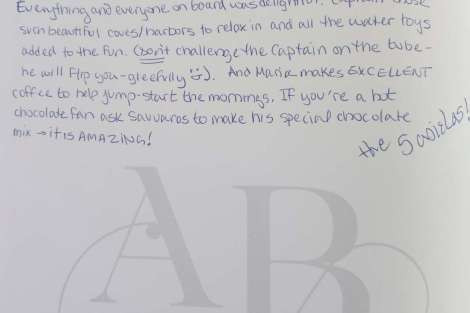 Everything and everyone on board was delightful!
such beautiful coves/harbors to relax in and all the water toys
added to the fun. (Don't challenge the Captain on the tube -
he will flip you - gleefully ☺). And Maria makes EXCELLENT
coffee to help jump-start the mornings. If you're a hot
chocolate fan ask Savvaros to make his special chocolate
mix → it is AMAZING!
the 5
AB